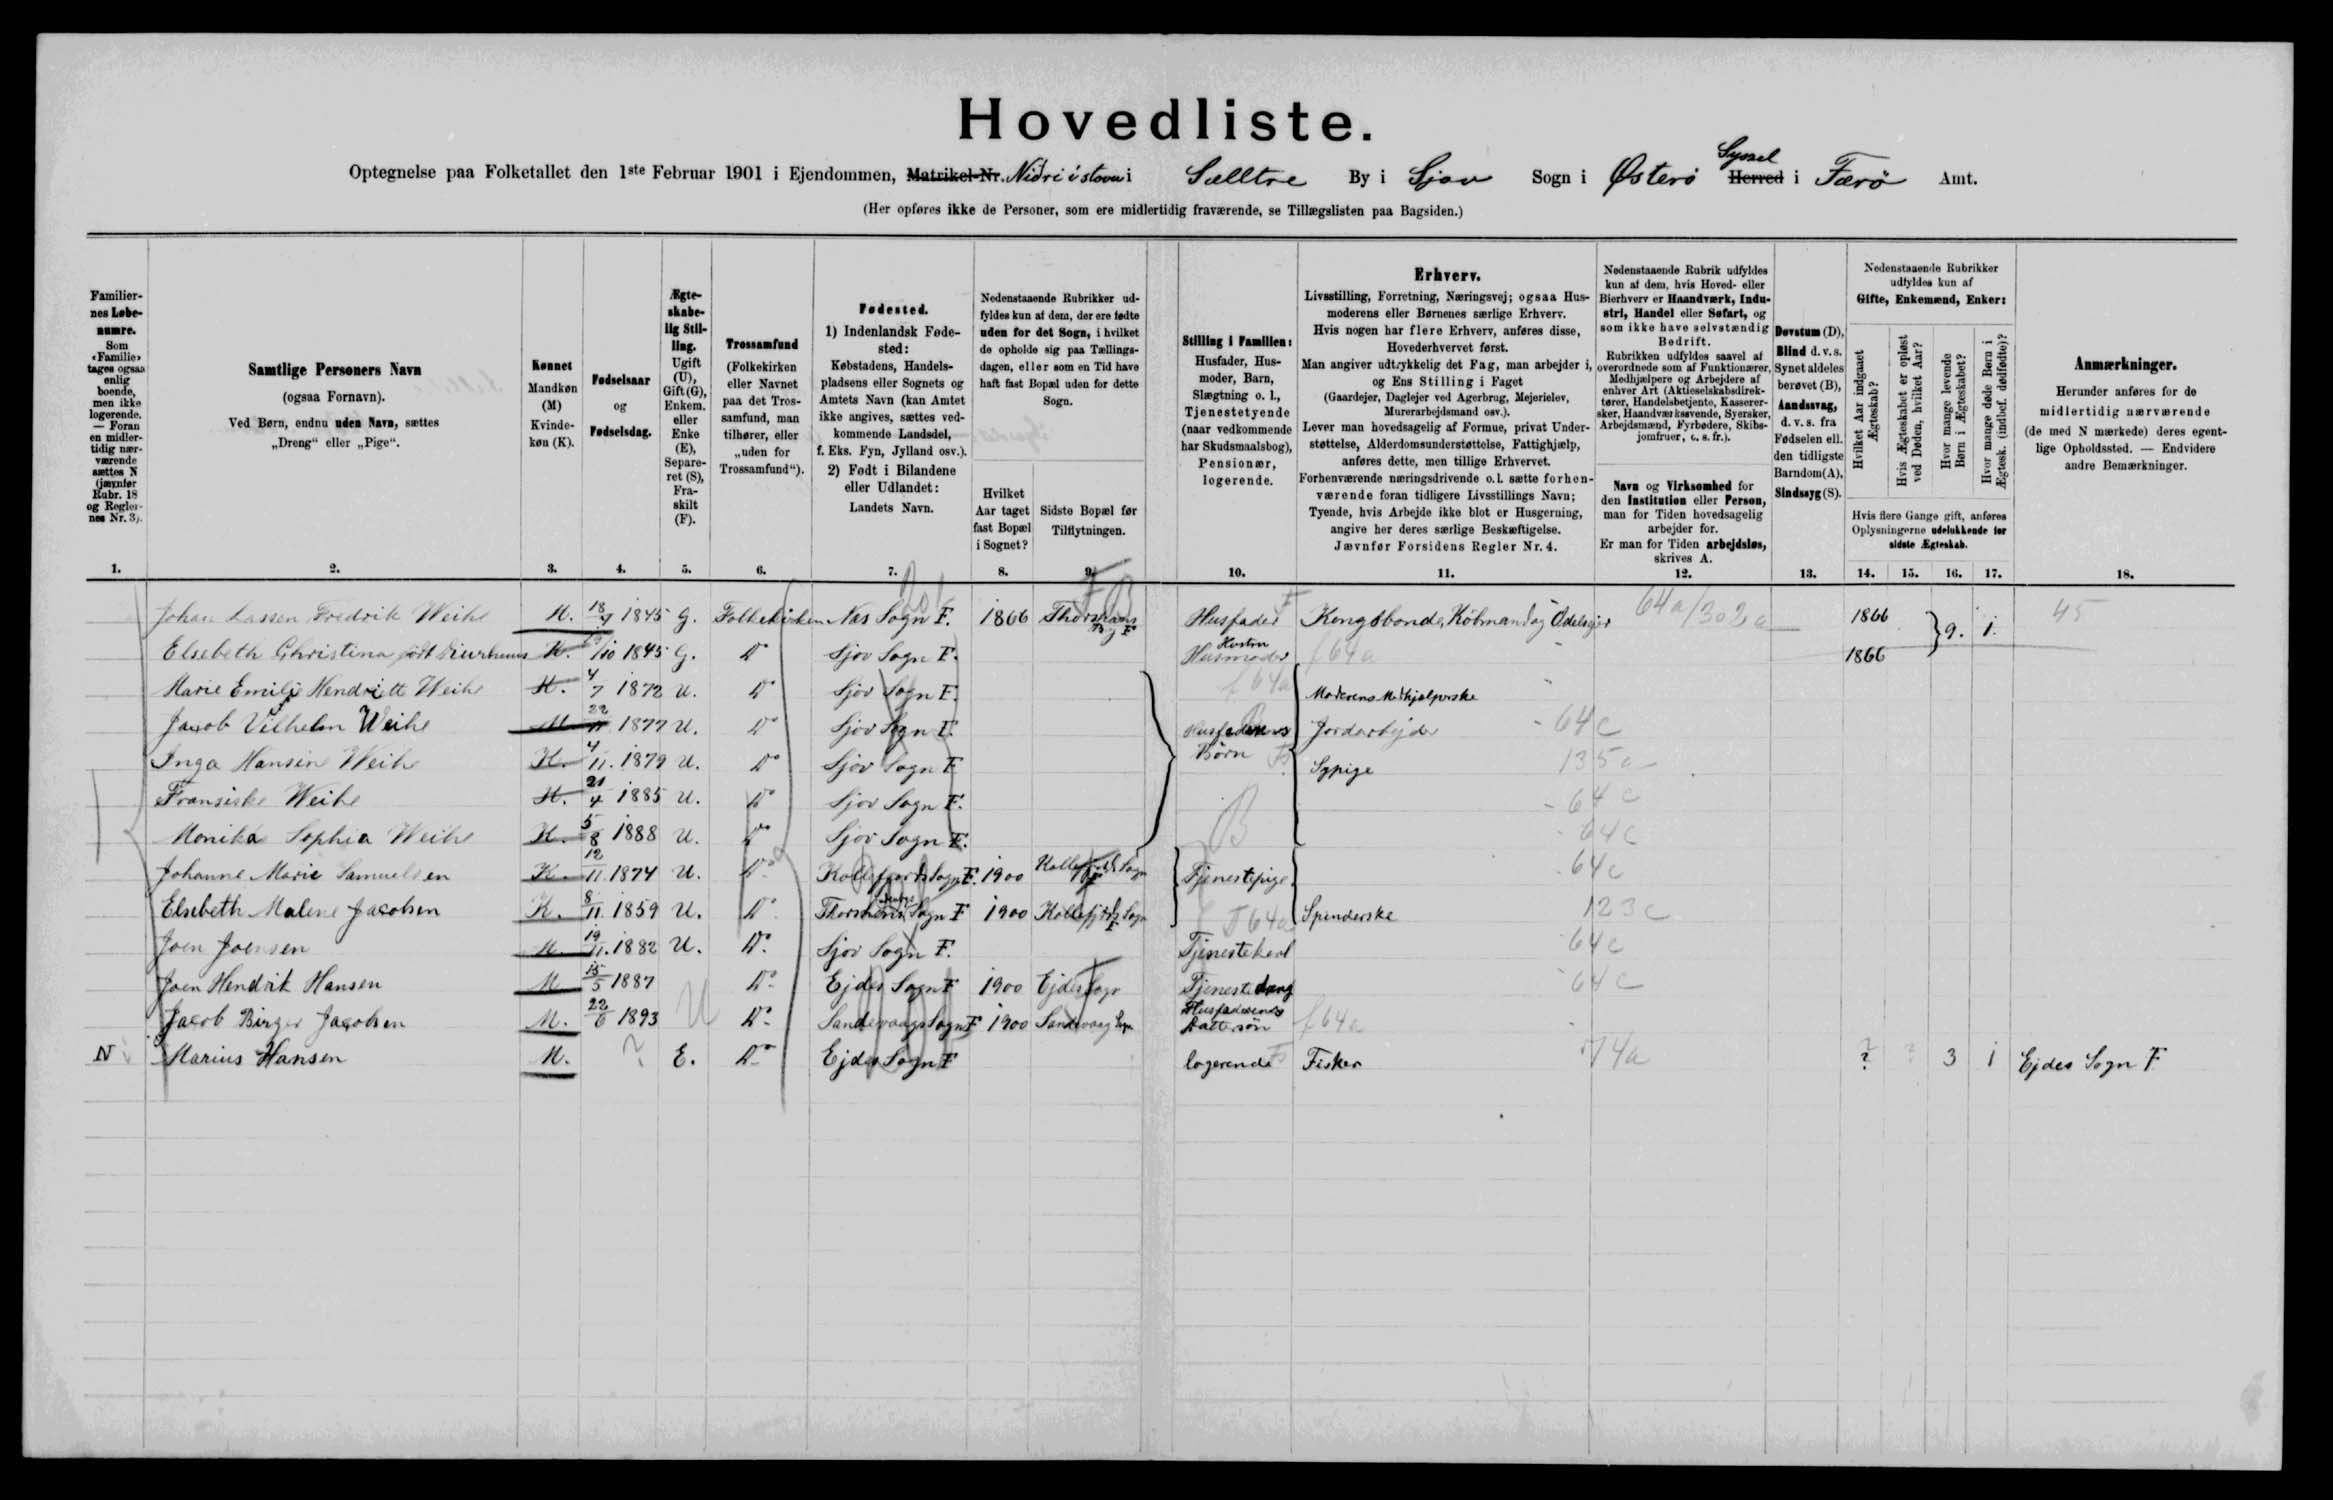 Hovedliste.
Optegnelse paa Folketallet den 1ste Februar 1901 i Ejendommen, Matrikel-Nr. Nidri i stovu i Sælltre By i Sjov Sogn i Østerö Syssel Herred i Færö Amt.
(Her opføres ikke de Personer, som ere midlertidig fraværende, se Tillægslisten paa Bagsiden.)
Familiernes Løbenumre. Som «Familie» tages ogsaa enlig boende, men ikke logerende. — Foran en midlertidig nærværende sættes N (jævnfør Rubr. 18 og Reglernes Nr. 3).
Samtlige Personers Navn (ogsaa Fornavn). Ved Børn, endnu uden Navn, sættes „Dreng“ eller „Pige“.
Kønnet Mandkøn (M) Kvindekøn (K).
Fødselsaar og Fødselsdag.
Ægteskabelig Stilling. Ugift (U), Gift (G), Enkem. eller Enke (E), Separeret (S), Fraskilt (F).
Trossamfund (Folkekirken eller Navnet paa det Trossamfund, man tilhører, eller „uden for Trossamfund“).
Fødested. 1) Indenlandsk Fødested: Købstadens, Handelspladsens eller Sognets og Amtets Navn (kan Amtet ikke angives, sættes vedkommende Landsdel, f. Eks. Fyn, Jylland osv.). 2) Født i Bilandene eller Udlandet: Landets Navn.
Nedenstaaende Rubrikker udfyldes kun af dem, der ere fødte uden for det Sogn, i hvilket de opholde sig paa Tællingsdagen, eller som en Tid have haft fast Bopæl uden for dette Sogn.
Hvilket Aar taget fast Bopæl i Sognet?
Sidste Bopæl før Tilflytningen.
Stilling i Familien: Husfader, Husmoder, Barn, Slægtning o. l., Tjenestetyende (naar vedkommende har Skudsmaalsbog), Pensionær, logerende.
Erhverv.
Livsstilling, Forretning, Næringsvej; ogsaa Husmoderens eller Børnenes særlige Erhverv.
Hvis nogen har flere Erhverv, anføres disse, Hovederhvervet først.
Man angiver udtrykkelig det Fag, man arbejder i, og Ens Stilling i Faget
(Gaardejer, Daglejer ved Agerbrug, Mejerielev, Murerarbejdsmand osv.).
Lever man hovedsagelig af Formue, privat Understøttelse, Alderdomsunderstøttelse, Fattighjælp, anføres dette, men tillige Erhvervet.
Forhenværende næringsdrivende o.l. sætte forhenværende foran tidligere Livsstillings Navn; Tyende, hvis Arbejde ikke blot er Husgerning, angive her deres særlige Beskæftigelse.
Jævnfør Forsidens Regler Nr. 4.
Nedenstaaende Rubrik udfyldes kun af dem, hvis Hoved- eller Bierhverv er Haandværk, Industri, Handel eller Søfart, og som ikke have selvstændig Bedrift.
Rubrikken udfyldes saavel af overordnede som af Funktionærer, Medhjælpere og Arbejdere af enhver Art (Aktieselskabsdirektører, Handelsbetjente, Kasserersker, Haandværkssvende, Syersker, Arbejdsmænd, Fyrbødere, Skibsjomfruer, o. s. fr.).
Navn og Virksomhed for den Institution eller Person, man for Tiden hovedsagelig arbejder for.
Er man for Tiden arbejdsløs, skrives A.
Døvstum (D), Blind d. v. s. Synet aldeles berøvet (B), Aandssvag, d. v. s. fra Fødselen ell. den tidligste Barndom (A), Sindssyg (S).
Nedenstaaende Rubrikker udfyldes kun af Gifte, Enkemænd, Enker:
Hvilket Aar indgaaet Ægteskab?
Hvis Ægteskabet er opløst ved Døden, hvilket Aar?
Hvor mange levende Børn i Ægteskabet?
Hvor mange døde Børn i Ægtesk. (indbef. dødfødte)?
Hvis flere Gange gift, anføres Oplysningerne udelukkende for sidste Ægteskab.
Anmærkninger.
Herunder anføres for de midlertidig nærværende (de med N mærkede) deres egentlige Opholdssted. — Endvidere andre Bemærkninger.
1. 2. 3. 4. 5. 6. 7. 8. 9. 10. 11. 12. 13. 14. 15. 16. 17. 18.
Johan Lassen Fredrik Weihe M. 18/7 1845 G. Folkekirken Nas Sogn F. 1866 Thorshavns By F Husfader Kongsbonde, Köbmand og Odelsejer 64a/302a 1866 9. 1. 45
Elsebeth Christina födt K. /10 1845 G. Do Sjov Sogn F. Husmoder f64a 1866
Marie Emilje Hendriette Weihe K. 4/7 1872 U. Do Sjov Sogn F. f64a Moderens Medhjælperske
Jacob Vilhelm Weihe M 22/11 1877 U. Do Sjov Sogn F. Husfaderens Jordarbejder 64c
Inga Hansine Weihe K. 4/11. 1879 U. Do Sjov Sogn F Börn Sypige 135a
Fransiske Weihe K. 21/4 1885 U. Do Sjov Sogn F. 64c
Monika Sophia Weihe K. 5/8 1888 U. Do Sjov Sogn F. B 64c
Johanne Marie Samuelsen K. 12/11. 1874 U. Do Kollefjords Sogn F. 1900 Kollefjords Sogn F Tjenestepige 64c
Elsebeth Malene Jacobsen K. 8/11 1859 U. Do Thorshavns Sogn F 1900 Kollefjords Sogn F T64a Spinderske 123c
Joen Joensen M. 19/11. 1882 U. Do. Sjov Sogn F. Tjenestekarl 64c
Joen Hendrik Hansen M 15/5 1887 Do Ejdes Sogn F 1900 Ejdes Sogn Tjenestedreng 64c
Jacob Birger Jacobsen M. 22/6 1893 U Do Sandevaags Sogn F 1900 Sandevaag Sogn Husfaderens Dattersön f64a
N Marius Hansen M. ? E. Do Ejdes Sogn F logerende Fisker 74a ? ? 3 1 Ejdes Sogn F